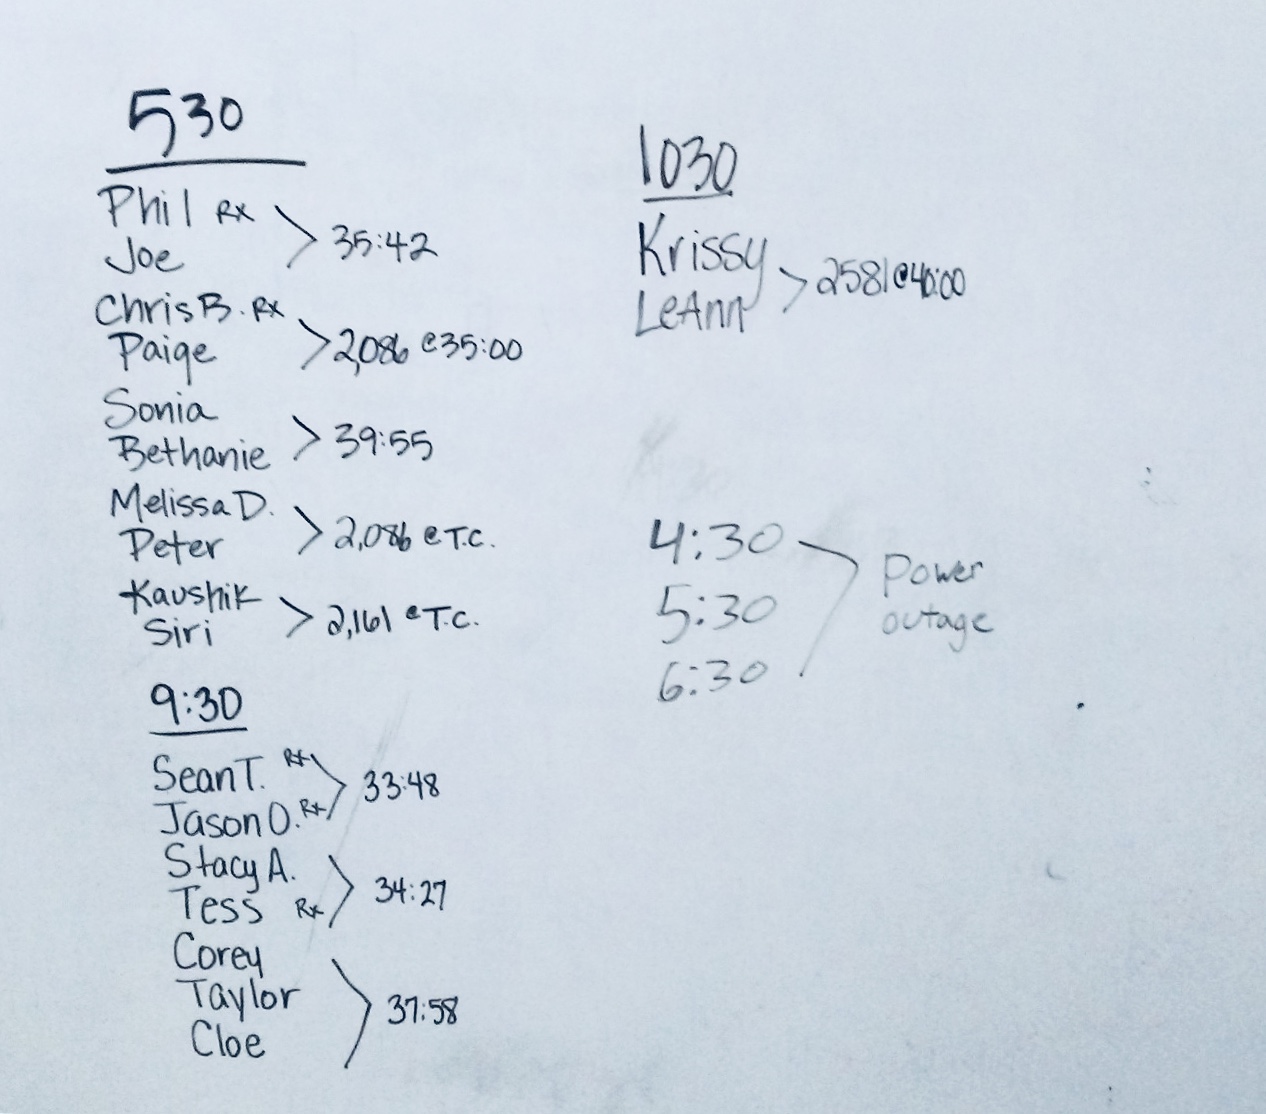 530
Phil Rx
Joe
35:42
Chris B. Rx
Paige
2,086 @ 35:00
Sonia
Bethanie
39:55
Melissa D.
Peter
2,086 @ T.C.
Kaushik
Siri
2,161 @ T.C.
9:30
Sean T. Rx
Jason O. Rx
33:48
Stacy A.
Tess Rx
34:27
Corey
Taylor
Cloe
37:58
1030
Krissy
LeAnn
2581 @ 40:00
4:30
5:30
6:30
Power
outage